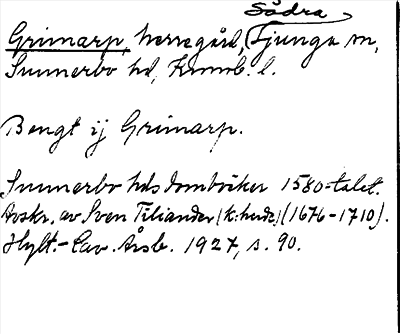 Södra
Grimarp, herregård, Ljunga sn,
Sunnerbo hd, Kronb. l.
Bengt ij Grimarp.
Sunnerbo hds domböcker 1580-talet.
Avskr. av Sven Tiliander (k:herde) (1676-1710).
Hylt.-Cav. Årsb. 1927, s. 90.